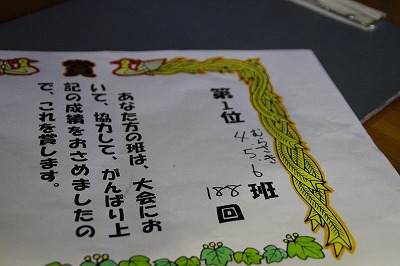 賞
第1位
むらさき
4.5.6班
188回
あなた方の班は、大会にお
いて、協力して、がんばり上
記の成績をおさめましたの
で、これを賞します。